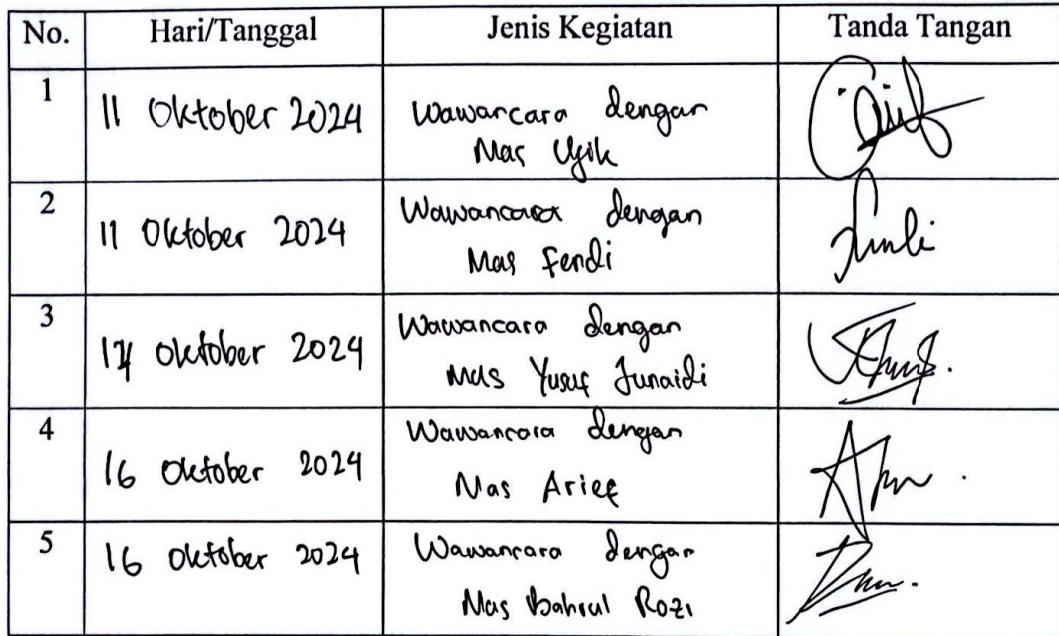 No. Hari/Tanggal Jenis Kegiatan Tanda Tangan
1 11 Oktober 2024 Wawancara dengan
Mas Ugik
2 11 Oktober 2024 Wawancara dengan
Mas Fendi
3 Oktober 2024 Wawancara dengan
Mas Yusuf Junaidi
4 16 Oktober 2024 Wawancara dengan
Mas Arief
5 16 Oktober 2024 Wawancara dengan
Mas Bahrul Rozi